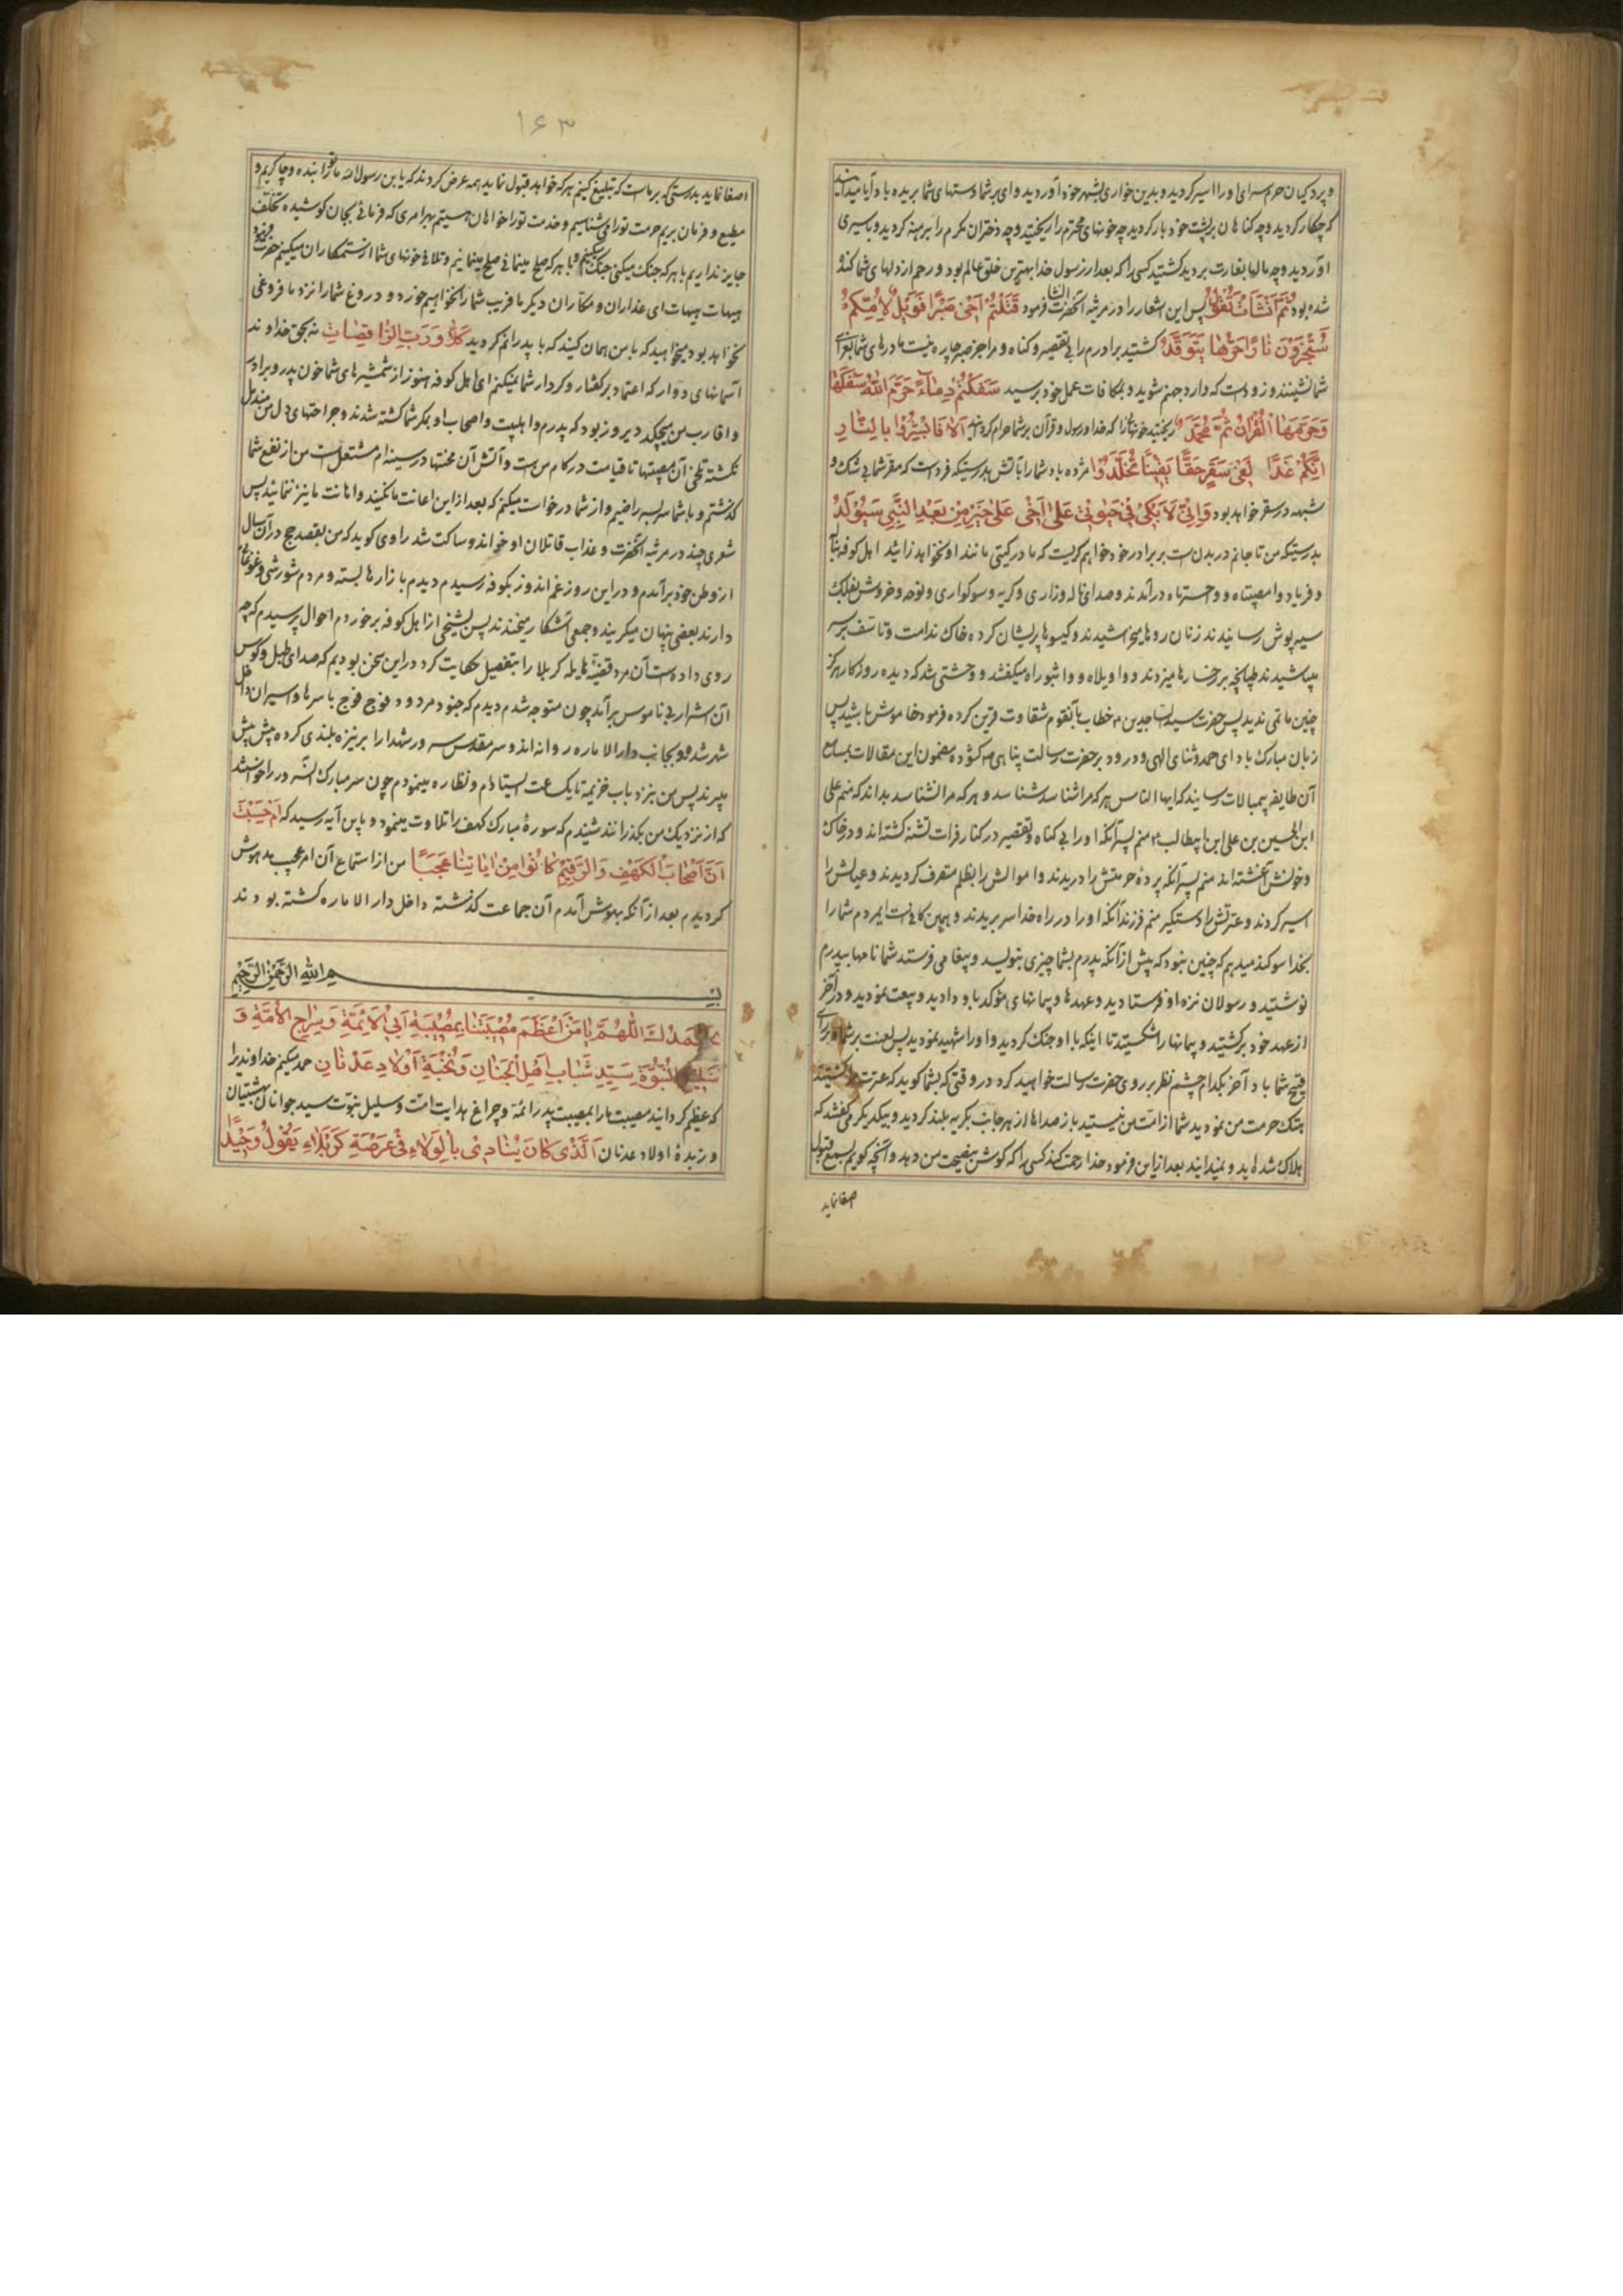 و پردکیان حرم سرای او را اسیر کردید و بدین خواری بشهر خود آوردید وای بر شما دستهای شما بریده باد آیا میدانید
که چکار کردید و چه کناهان بر پشت خود بار کردید چه خونهای محترم را ریختید و چه دختران مکرم را برهنه کردید و باسیری
آوردید و چه مالها بغارت بردید کشتید کسی را که بعد از رسول خدا بهترین خلق عالم بود و رحم از دلهای شما کنده
شده بود ثُمَّ اَنْشَاَتْ تَقُولُ پس این اشعار را در مرثیه آنحضرت انشا فرمود قَتَلْتُمْ اَخی صَبْرًا فَوَیْلٌ لِاُمِّکُمْ
سَتُجْزَوْنَ نارًا حَرُّها یَتَوَقَّدُ کشتید برادرم را بی تقصیر و کناه و مرا جز صبر چاره نیست مادرهای شما بعزای
شما نشینند و زود است که وارد جهنم شوید و بمکافات عمل خود برسید سَفَکْتُمْ دِماءً حَرَّمَ اللهُ سَفْکَها
وَحَرَّمَهَا الْقُرْآنُ ثُمَّ مُحَمَّدٌ ریختید خونهائی را که خدا و رسول و قرآن بر شما حرام کرده بود اَلا فَابْشِرُوا بِالنّارِ
اِنَّکُمْ غَدًا لَفی سَقَرٍ حَقًّا یَقینًا تُخَلَّدُوا مژده باد شما را بآتش بدرستیکه فردا است که مقر شما بی شک و
شبهه در سقر خواهد بود وَاِنّی لَاَبْکی فی حَیوتی عَلی اَخی عَلی خَیْرِ مِنْ بَعْدِ النَّبِیِّ سَیُولَدُ
بدرستیکه من تا جانم در بدن است بر برادر خود خواهم کریست که مادر کیتی مانند او نخواهد زائید اهل کوفه بناله
و فریاد وا مصیبتاه و وا حسرتاه درآمدند و صدای ناله و زاری و کریه و سوکواری و نوحه و خروش بفلک
سیه پوش رسانیدند زنان روها میخراشیدند و کیسوها پریشان کرده خاک ندامت و تاسف بر سر
میپاشیدند طپانچه بر رخسارها میزدند و وا ویلاه و وا ثبوراه میکفتند و وحشتی شد که دیده روزکار هرکز
چنین ماتمی ندید پس حضرت سید الساجدین خطاب بآنقوم شقاوت قرین کرده فرمود خاموش باشید پس
زبان مبارک بادای حمد و ثنای الهی و درود بر حضرت رسالت پناهی کشوده مضمون این مقالات بمسامع
آن طایفه بیمبالات رسانید که ایها الناس هر که مرا شناسد شناسد و هر که مرا نشناسد بداند که منم علی
ابن الحسین بن علی ابن ابیطالب منم پسر آنکه او را بی کناه و تقصیر در کنار فرات تشنه کشته اند و در خاک
و خونش آغشته اند منم پسر آنکه پرده حرمتش را دریدند و اموالش را بظلم متصرف کردیدند و عیالش را
اسیر کردند و عترتش را دستکیر منم فرزند آنکه او را در راه خدا سر بریدند و همین کافیست ایمردم شما را
بخدا سوکند میدهم که چنین نبود که پیش از آنکه پدرم بشما چیزی بنویسد و پیغامی فرستد شما نامها بپدرم
نوشتید و رسولان نزد او فرستادید و عهدها و پیمانهای مؤکد باو دادید و بیعت نمودید و در آخر
از عهد خود برکشتید و پیمانها را شکستید تا اینکه با او جنک کردید و او را شهید نمودید پس لعنت بر شما و برای
قبیح شما باد آخر بکدام چشم نظر بر روی حضرت رسالت خواهید کرد در وقتی که بشما کوید که عترت مرا کشتید
هتک حرمت من نمودید شما از امت من نیستید باز صداها از هر جانب بکریه بلند کردید و بیکدیکر می کفتند که
هلاک شده اید و نمیدانید بعد از این فرمود خدا رحمت کند کسی را که کوش بنصیحت من دهد و آنچه کویم بسمع قبول
اصغا نماید
۱۶۳
اصغا نماید بدرستی که بر ماست که تبلیغ کنیم هر که خواهد قبول نماید همه عرض کردند که یابن رسول الله ما تو را بنده و چاکریم و
مطیع و فرمان بریم حرمت تو را می شناسیم و خدمت تو را خواهان هستیم بهر امری که فرمائی بجان کوشیده تخلف
جایز نداریم با هر که جنک میکنی جنک میکنیم و با هر که صلح مینمائی صلح مینمائیم و تلافی خونهای شما از ستمکاران میکنیم حضرت فرمود
هیهات هیهات ای غداران و مکاران دیکر ما فریب شما را نخواهیم خورد و دروغ شما را نزد ما فروغی
نخواهد بود میخواهید که با من همان کنید که با پدرانم کردید کَلّا وَرَبِّ الرّاقِصاتِ نه بحق خداوند
آسمانهای دوار که اعتماد بر کفتار و کردار شما نمیکنم ای اهل کوفه هنوز از شمشیرهای شما خون پدر و برادر
و اقارب من میچکد دیروز بود که پدرم و اهلبیت و اصحاب او بمکر شما کشته شدند و جراحتهای دل من مندمل
نکشته تلخی آن مصیبتها تا قیامت در کام من است و آتش آن محنتها در سینه ام مشتعل است من از نفع شما
کذشتم و با شما سر بسر راضیم و از شما درخواست میکنم که بعد از این اعانت ما نکنید و اهانت ما نیز ننمائید پس
شعری چند در مرثیه آنحضرت و عذاب قاتلان او خواند و ساکت شد راوی کوید که من بقصد حج در آن سال
از وطن خود برآمدم و در این روز غم اندوز بکوفه رسیدم دیدم بازارها بسته و مردم شورشی و غوغائی
دارند بعضی پنهان میکریند و جمعی آشکار میخندند پس بشیخی از اهل کوفه برخوردم احوال پرسیدم که چه
روی داده است آن مرد قضیه هایله کربلا را بتفصیل حکایت کرد در این سخن بودیم که صدای طبل و کوس
آن اشرار بی ناموس برآمد چون متوجه شدم دیدم که جنود مردود فوج فوج با سرها و اسیران داخل
شهر شدند و بجانب دار الاماره روانه اند و سر مقدس سرور شهدا را بر نیزه بلندی کرده پیش پیش
میبرند پس من بنزد باب خزیمه تا یکساعت ایستادم و نظاره مینمودم چون سر مبارک آن سرور را خواستند
که از نزدیک من بکذرانند شنیدم که سورهٔ مبارک کهف را تلاوت مینمود و باین آیه رسید که اَمْ حَسِبْتَ
اَنَّ اَصْحابَ الْکَهْفِ وَالرَّقیمِ کانُوا مِنْ ایاتِنا عَجَبًا من از استماع آن امر عجیب مدهوش
کردیدم بعد از آنکه بهوش آمدم آن جماعت کذشته داخل دار الاماره کشته بودند
بسم الله الرحمن الرحیم
نَحْمَدُکَ اللّهُمَّ یا مَنْ اَعْظَمَ مُصیبَتَنا بِمُصیبَةِ اَبی الْاَئِمَّةِ وَسِراجِ الْاُمَّةِ وَ
سَلیلِ النُّبُوَّةِ سَیِّدِ شَبابِ اَهْلِ الْجَنانِ وَنُخْبَةِ اَوْلادِ عَدْنانِ حمد میکنم خداوندی را
که عظیم کردانید مصیبت ما را بمصیبت پدر ائمه و چراغ هدایت امت و سلیل نبوت سید جوانان بهشتیان
و زبدهٔ اولاد عدنان اَلَّذی کانَ یُنادی بِالْوَلاءِ فی عَرْصَةِ کَرْبَلاءِ یَقُولُ وَحیدًا